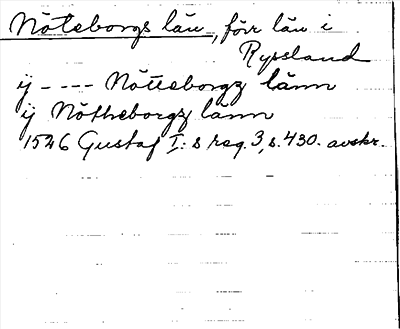 Nöteborgs län, förr län i
Ryssland
ÿ ---- Nötteborgz länn
ÿ Nötheborgz länn
1526 Gustaf I:s reg. 3, s. 430. avskr.